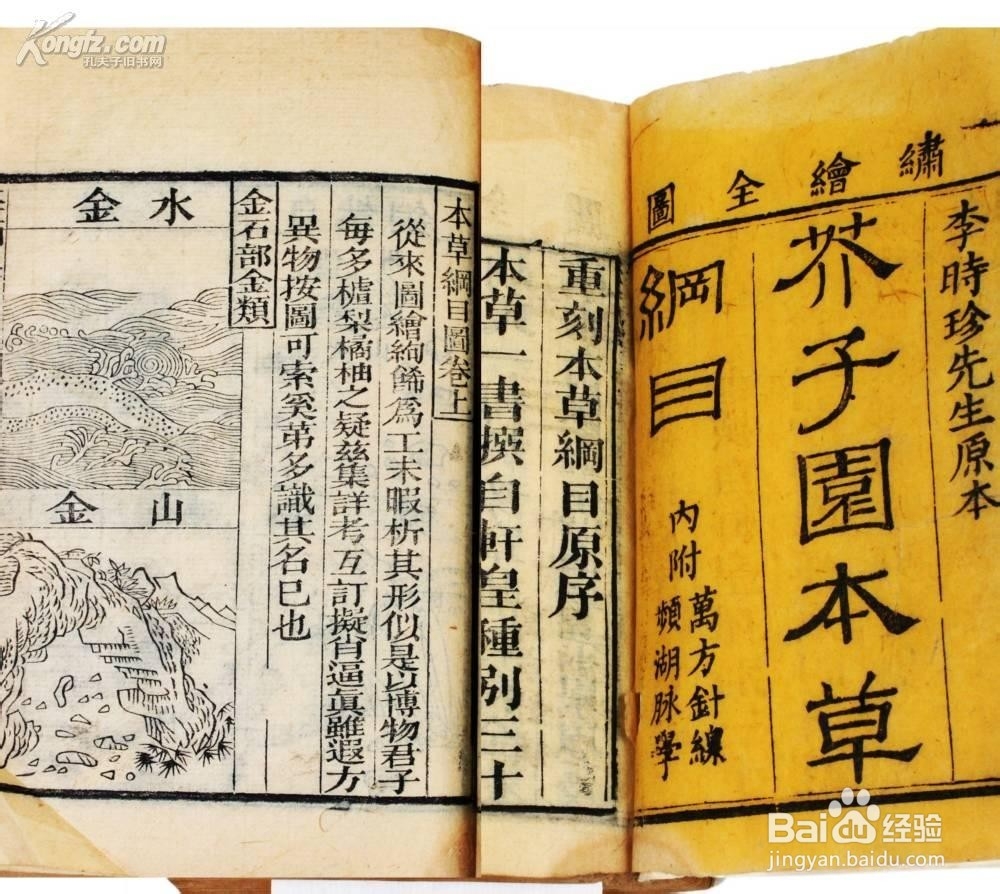 繡繪全圖
李時珍先生原本
芥子園本草
綱目
內附
萬方針線
瀕湖脉學
重刻本草綱目原序
本草一書撰自軒皇種別三十
本草綱目圖卷上
從來圖繪絢餙爲工未暇析其形似是以博物君子
每多樝梨橘柚之疑兹集詳考互訂擬肖逼眞雖遐方
異物按圖可索奚第多識其名已也
金石部金類
水金
山金
Kongfz.com
孔夫子旧书网
Baidu经验
jingyan.baidu.com